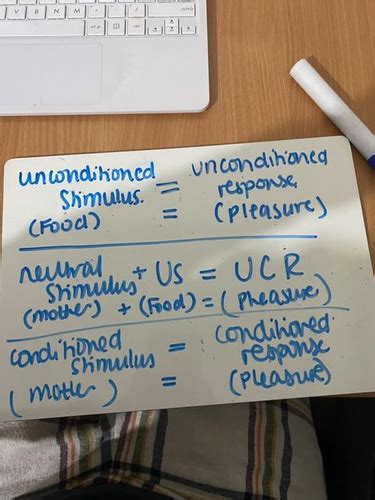 unconditioned stimulus. = unconditioned response
(Food) = (pleasure)
neutral stimulus + US = UCR
(mother) + (Food) = (Pleasure)
conditioned stimulus = conditioned response
(mother) = (Pleasure)